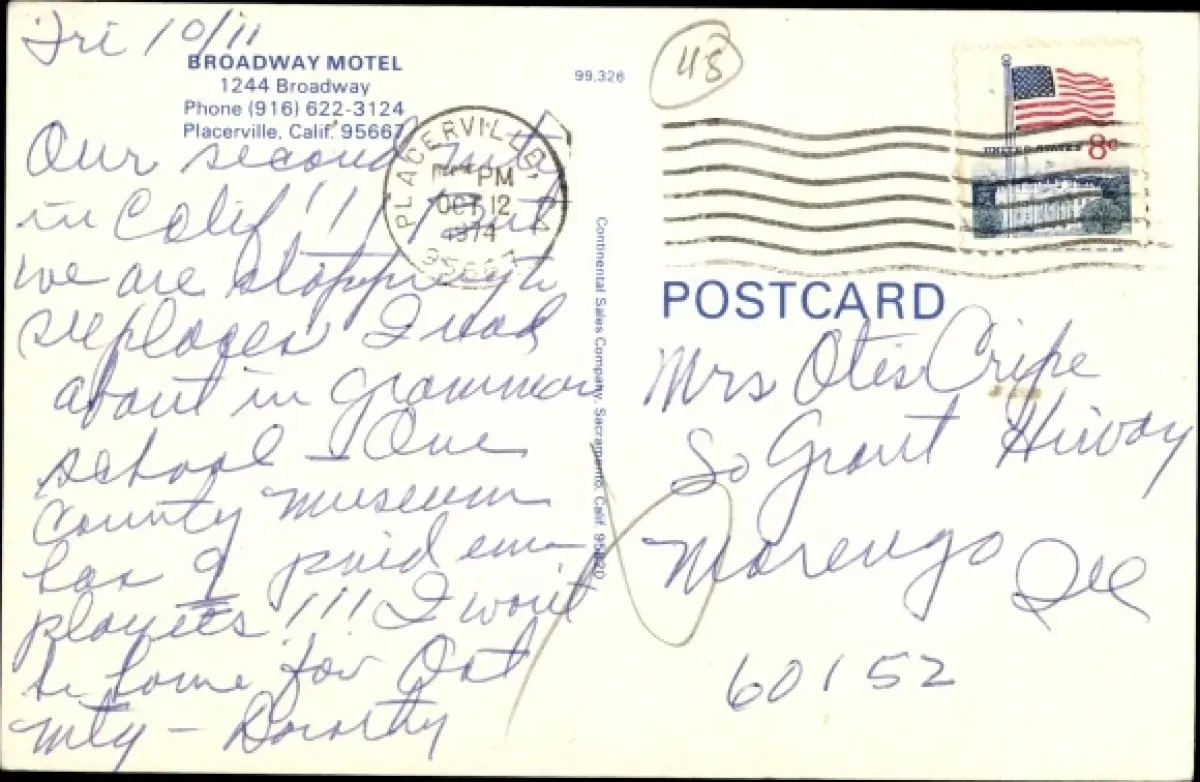 Fri 10/11
BROADWAY MOTEL
1244 Broadway
Phone (916) 622-3124
Placerville, Calif. 95667
Our second
in Calif !!! But
we are stopping to
see places I read
about in grammar
school - One
County museum
has 9 paid em-
ployees !!! I won't
be home for Oct
Mtg - Dorothy
99,326
Continental Sales Company, Sacramento, Calif. 95820
48
PLACERVILLE,
PM
OCT 12
1974
95667
UNITED STATES 8c
POSTCARD
Mrs Otis Cripe
So Grant Hiway
Marengo Ill
60152